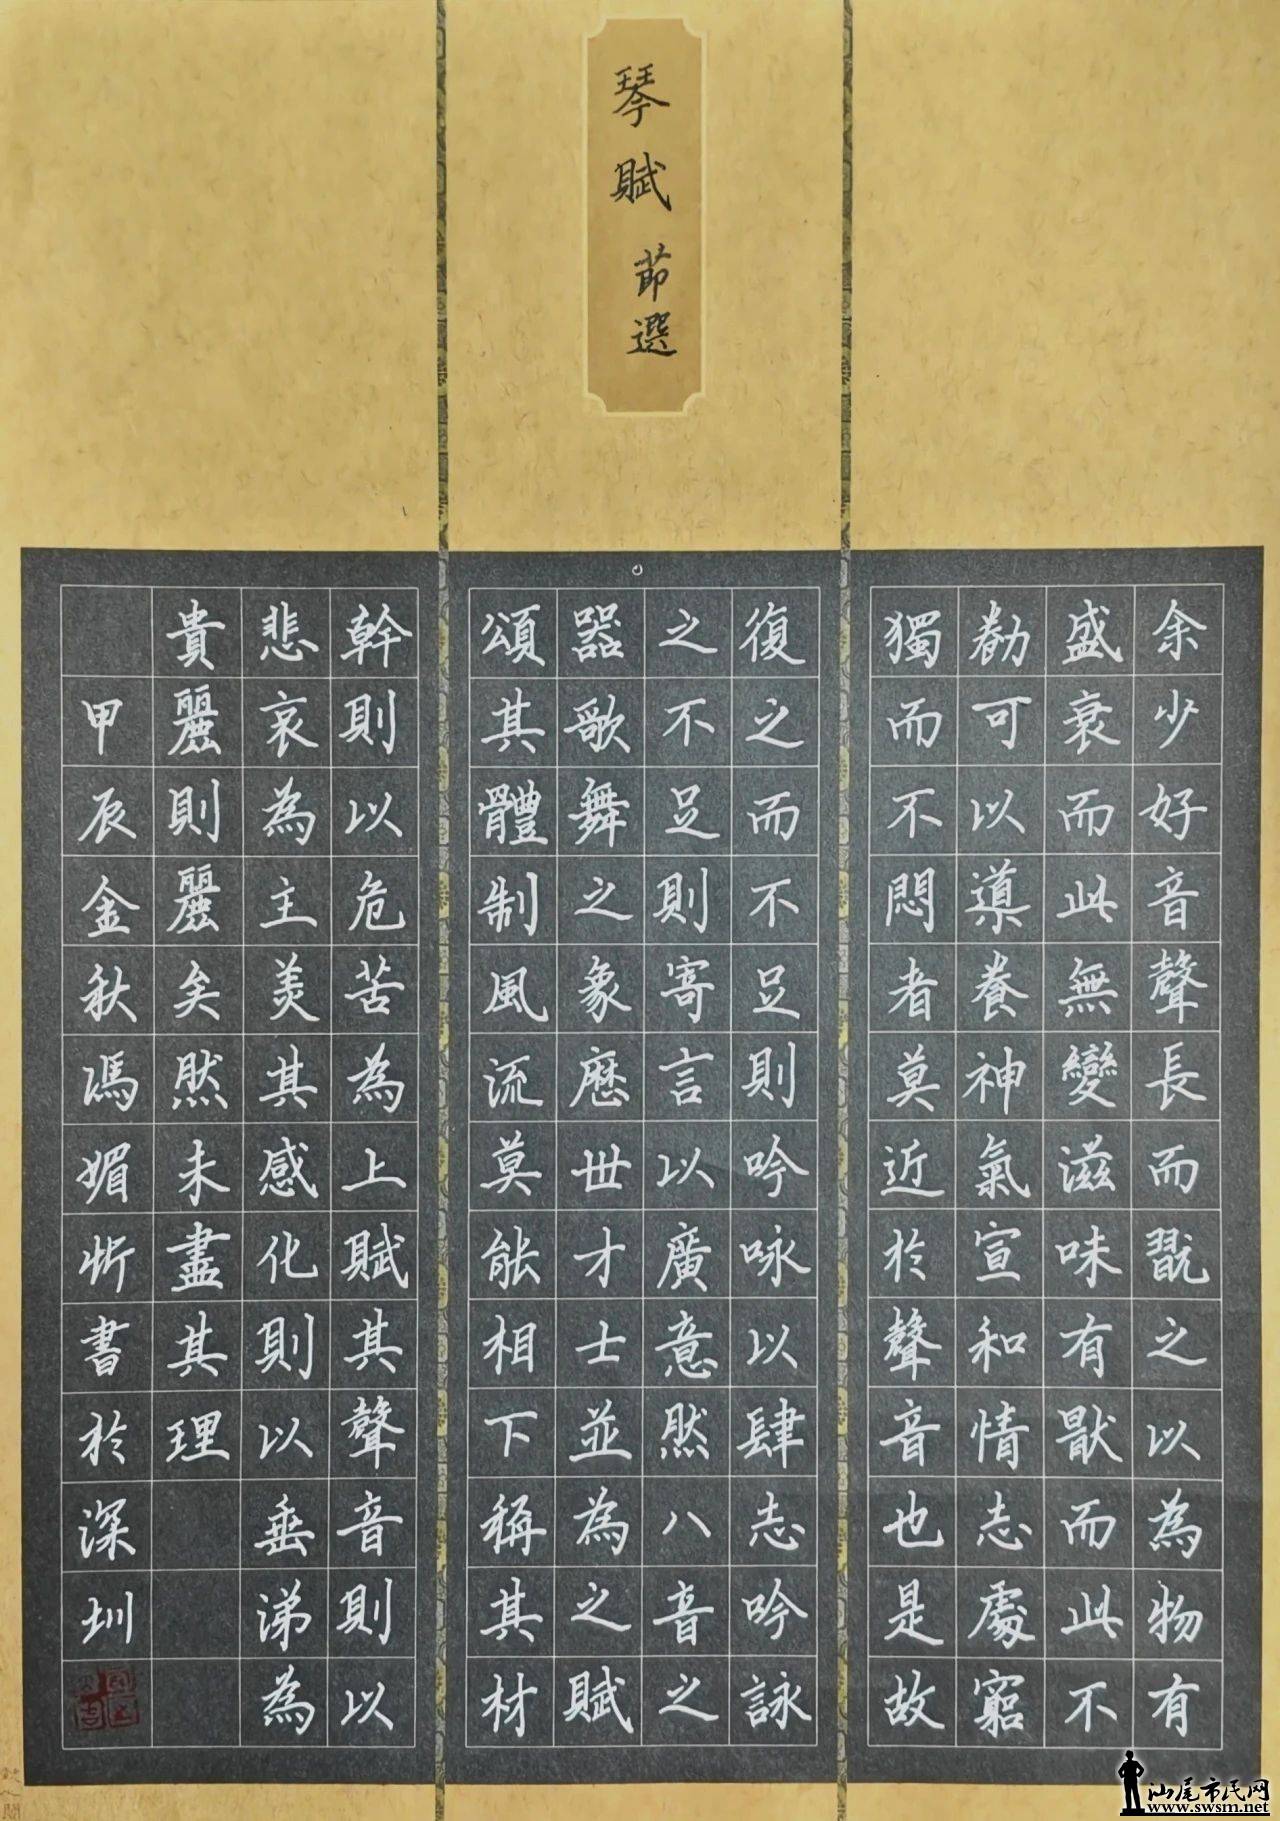 琴賦 莭選
余少好音聲長而翫之以為物有
盛衰而此無變滋味有猒而此不
勌可以導養神氣宣和情志處窮
獨而不悶者莫近於聲音也是故
復之而不足則吟咏以肆志吟詠
之不足則寄言以廣意然八音之
器歌舞之象厯世才士並為之賦
頌其體制風流莫能相下稱其材
幹則以危苦為上賦其聲音則以
悲哀為主美其感化則以垂涕為
貴麗則麗矣然未盡其理
甲辰金秋馮媚書於深圳
汕尾市民网
www.swsm.net